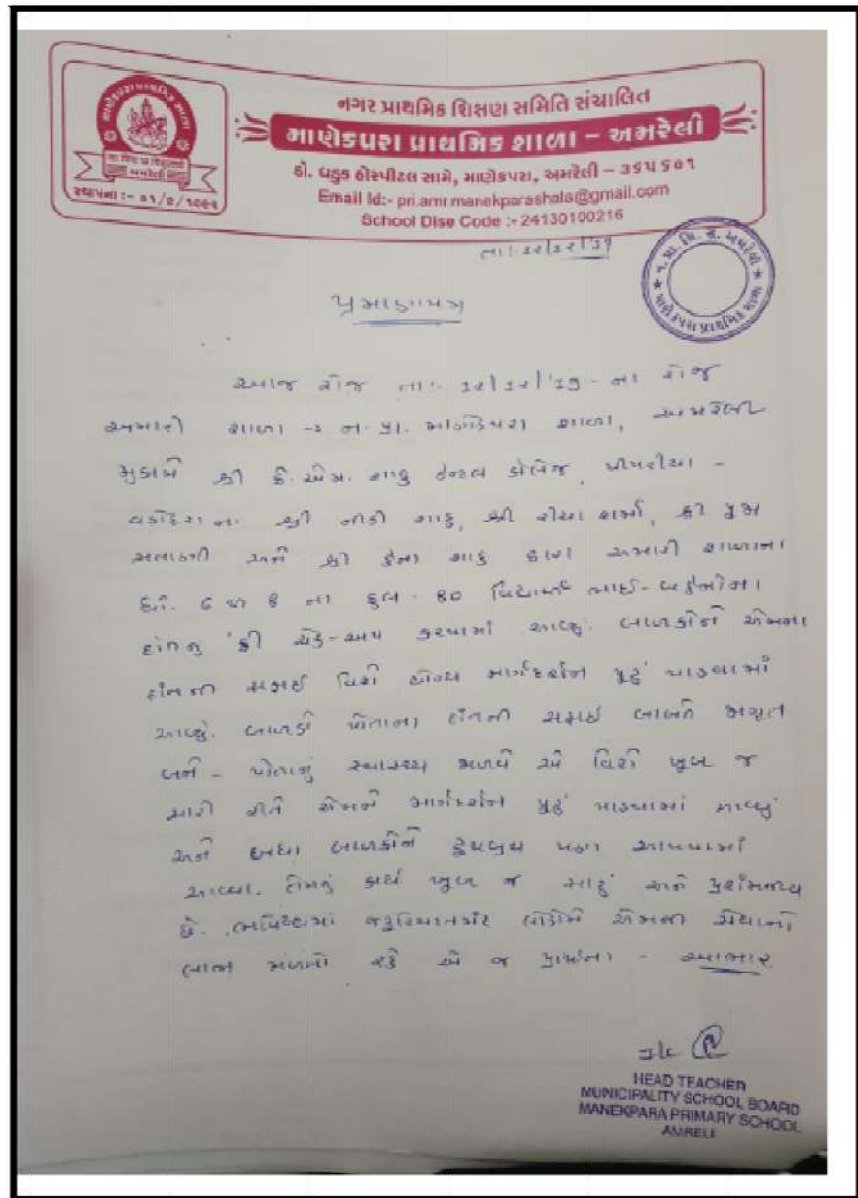 નગર પ્રાથમિક શિક્ષણ સમિતિ સંચાલિત
માણેકપરા પ્રાથમિક શાળા – અમરેલી
ડો. ધડુક હોસ્પીટલ સામે, માણેકપરા, અમરેલી – ૩૬૫૬૦૧
Email Id:- pri.amr.manekparashala@gmail.com
School Dise Code :- 24130100216
માણેકપરા પ્રાથમિક શાળા
અમરેલી
સ્થાપના :-
ન. પ્રા. શિ. સ. અમરેલી
માણેકપરા પ્રાથમિક શાળા
પ્રમાણપત્ર
આજ રોજ તા:- ના રોજ
અમારી શાળા ન. પ્રા. માણેકપરા શાળા, અમરેલી
મુકામે શ્રી કે. એમ. શાહ ડેન્ટલ કોલેજ, પીપરીયા -
વડોદરા ના શ્રી શાહ, શ્રી રીયા શર્મા, શ્રી
અને શ્રી શાહ દ્વારા અમારી શાળાના
ધો. ૬ થી ૮ ના કુલ - ૪૦ વિદ્યાર્થી ભાઈ - બહેનોના
દાંતનું ફ્રી ચેક-અપ કરવામાં આવ્યું. બાળકોને એમના
દાંતની સફાઈ વિશે યોગ્ય માર્ગદર્શન પુરું પાડવામાં
આવ્યું. બાળકો પોતાના દાંતની સફાઈ બાબતે જાગૃત
બને - પોતાનું સ્વાસ્થ્ય જાળવે એ વિશે ખૂબ જ
સારી રીતે એમને માર્ગદર્શન પુરું પાડવામાં આવ્યું
અને બધા બાળકોને ટુથબ્રશ પણ આપવામાં
આવ્યા. તેમનું કાર્ય ખૂબ જ સારું અને પ્રશંસનીય
છે. ભવિષ્યમાં જરૂરિયાતમંદ લોકોને એમની સેવાનો
લાભ મળતો રહે એ જ પ્રાર્થના - આભાર
I/c
HEAD TEACHER
MUNICIPALITY SCHOOL BOARD
MANEKPARA PRIMARY SCHOOL
AMRELI